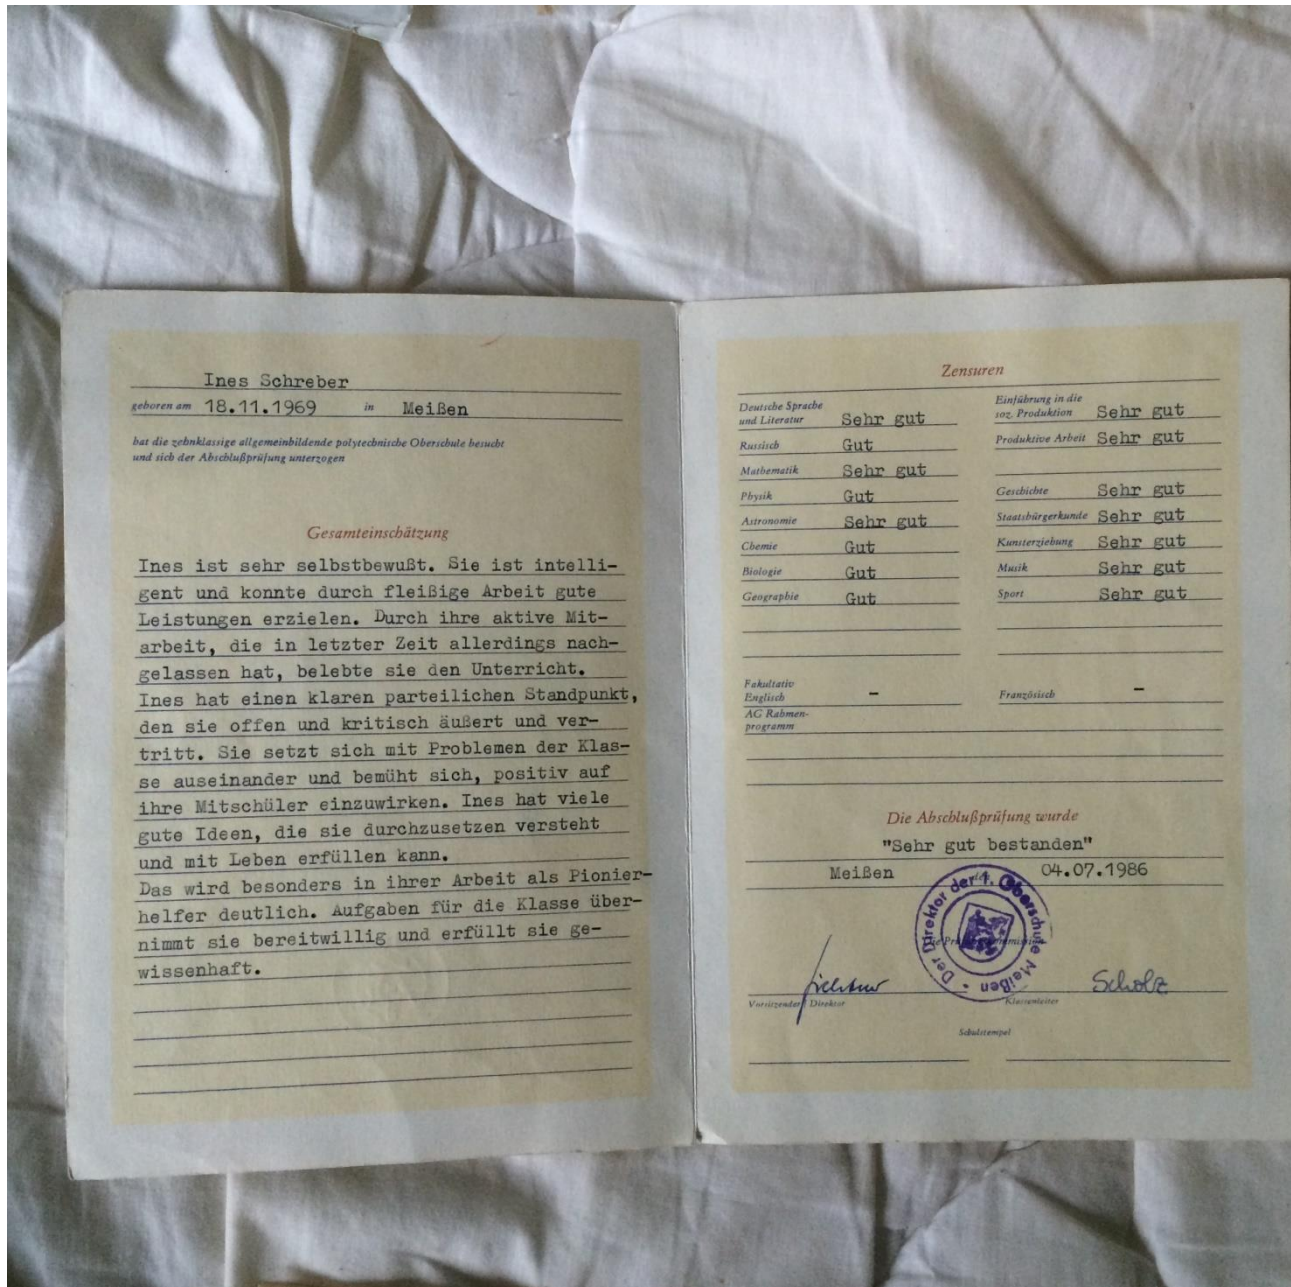 Ines Schreber
geboren am 18.11.1969 in Meißen
hat die zehnklassige allgemeinbildende polytechnische Oberschule besucht
und sich der Abschlußprüfung unterzogen
Gesamteinschätzung
Ines ist sehr selbstbewußt. Sie ist intelli-
gent und konnte durch fleißige Arbeit gute
Leistungen erzielen. Durch ihre aktive Mit-
arbeit, die in letzter Zeit allerdings nach-
gelassen hat, belebte sie den Unterricht.
Ines hat einen klaren parteilichen Standpunkt,
den sie offen und kritisch äußert und ver-
tritt. Sie setzt sich mit Problemen der Klas-
se auseinander und bemüht sich, positiv auf
ihre Mitschüler einzuwirken. Ines hat viele
gute Ideen, die sie durchzusetzen versteht
und mit Leben erfüllen kann.
Das wird besonders in ihrer Arbeit als Pionier-
helfer deutlich. Aufgaben für die Klasse über-
nimmt sie bereitwillig und erfüllt sie ge-
wissenhaft.
Zensuren
Deutsche Sprache
und Literatur Sehr gut
Russisch Gut
Mathematik Sehr gut
Physik Gut
Astronomie Sehr gut
Chemie Gut
Biologie Gut
Geographie Gut
Einführung in die
soz. Produktion Sehr gut
Produktive Arbeit Sehr gut
Geschichte Sehr gut
Staatsbürgerkunde Sehr gut
Kunsterziehung Sehr gut
Musik Sehr gut
Sport Sehr gut
Fakultativ
Englisch –
Französisch –
AG Rahmen-
programm
Die Abschlußprüfung wurde
"Sehr gut bestanden"
Meißen 04.07.1986
Der Direktor der 4. Oberschule Meißen
Die Prüfungskommission
Scholz
Vorsitzender / Direktor
Klassenleiter
Schulstempel